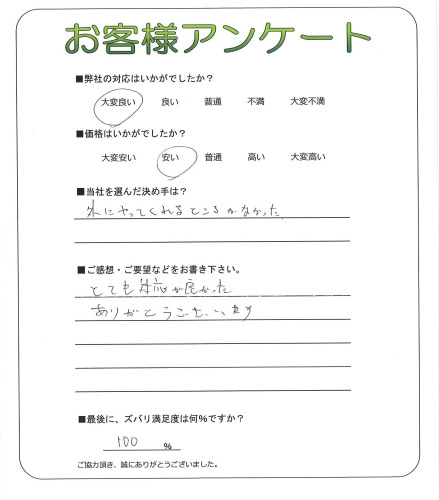 お客様アンケート
■弊社の対応はいかがでしたか？
大変良い 良い 普通 不満 大変不満
■価格はいかがでしたか？
大変安い 安い 普通 高い 大変高い
■当社を選んだ決め手は？
外にやってくれるところがなかった
■ご感想・ご要望などをお書き下さい。
とても対応が良かった
ありがとうございます
■最後に、ズバリ満足度は何％ですか？
100 %
ご協力頂き、誠にありがとうございました。